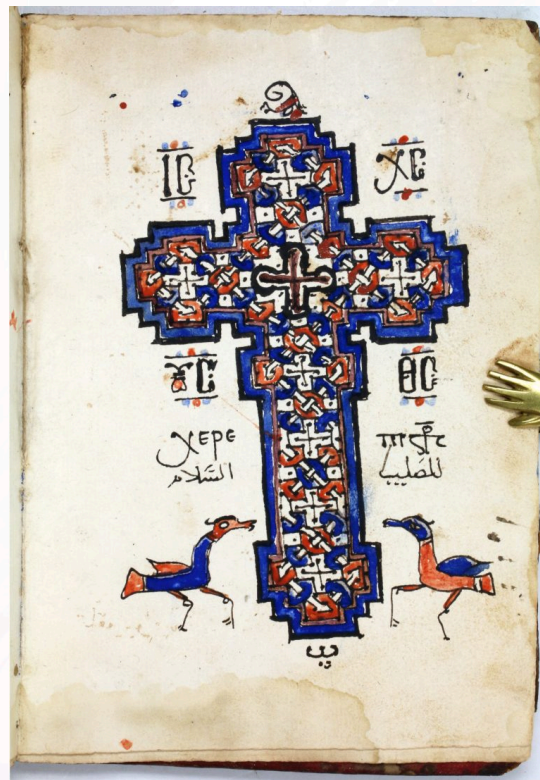 ⲒⲤ ⲬⲤ
ⲨⲤ ⲐⲤ
ⲭⲉⲣⲉ
السَّلام للصَّليب